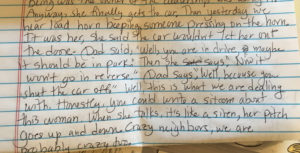 being was the owner of the
Anyway she finally gets the car. Then yesterday we
hear laid horn beeping, someone pressing on the horn.
It was her, she said the car wouldn't let her out
the door. Dad said, "Well, you are in drive & maybe
it should be in park." Then she says, "Now it
won't go in reverse." Dad says, "Well, because you
shut the car off." Well this is what we are dealing
with. Honestly you could write a sitcom about
this woman. When she talks, it's like a siren, her pitch
goes up and down. Crazy neighbors, we are
probably crazy too